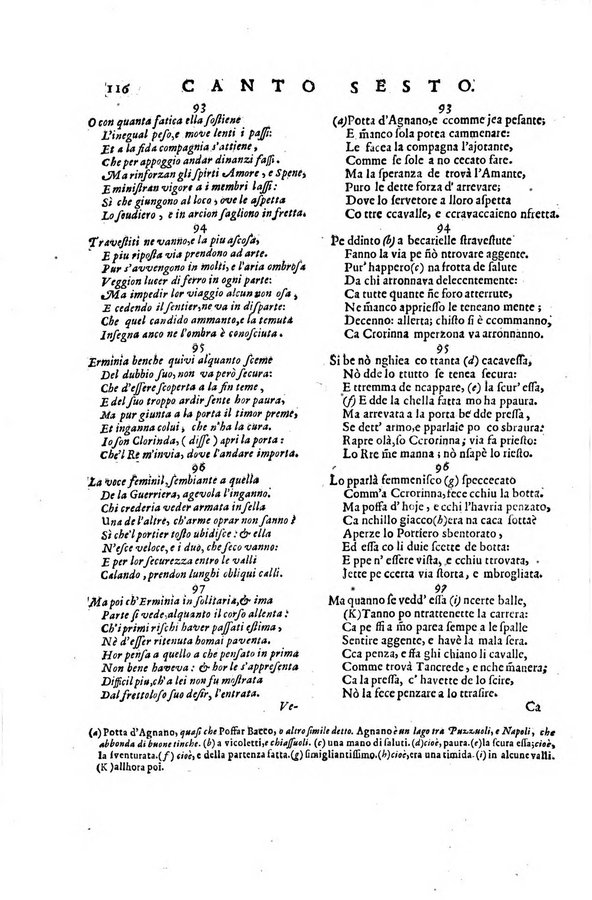 116 CANTO SESTO.
93
O con quanta fatica ella sostiene
L'inegual peso, e move lenti i passi:
Et a la fida compagnia s'attiene,
Che per appoggio andar dinanzi fassi.
Ma rinforzan gli spirti Amore, e Spene,
E ministran vigore a i membri lassi:
Sì che giungono al loco, ove le aspetta
Lo scudiero, e in arcion sagliono in fretta.
94
Travestiti ne vanno, e la piu ascosa,
E piu riposta via prendono ad arte.
Pur s'avvengono in molti, e l'aria ombrosa
Veggion lucer di ferro in ogni parte:
Ma impedir lor viaggio alcun non osa,
E cedendo il sentier, ne va in disparte:
Che quel candido ammanto, e la temuta
Insegna anco ne l'ombra è conosciuta.
95
Erminia benche quivi alquanto sceme
Del dubbio suo, non va però secura:
Che d'essere scoperta a la fin teme,
E del suo troppo ardir sente hor paura,
Ma pur giunta a la porta il timor preme,
Et inganna colui, che n'ha la cura.
Io son Clorinda, (disse) apri la porta:
Che'l Re m'invia, dove l'andare importa.
96
La voce feminil, sembiante a quella
De la Guerriera, agevola l'inganno.
Chi crederia veder armata in sella
Una de l'altre, ch'arme oprar non sanno?
Sì che'l portier tosto ubidisce: & ella
N'esce veloce, e i duo, che seco vanno:
E per lor securezza entro le valli
Calando, prendon lunghi obliqui calli.
97
Ma poi ch'Erminia in solitaria, & ima
Parte si vede, alquanto il corso allenta:
Ch'i primi rischi haver passati estima,
Nè d'esser ritenuta homai paventa.
Hor pensa a quello a che pensato in prima
Non bene haveva: & hor le s'appresenta
Difficil piu, ch'a lei non fu mostrata
Dal frettoloso suo desir, l'entrata.
Ve-
93
(a) Potta d'Agnano, e ccomme jea pesante;
E m̃anco sola potea cammenare:
Le facea la compagna l'ajotante,
Comme se sole a no cecato fare.
Ma la speranza de trovà l'Amante,
Puro le dette forza d'arrevare;
Dove lo servetore a lloro aspetta
Co ttre ccavalle, e ccravaccaieno nfretta.
94
Pe ddinto (b) a becarielle stravestute
Fanno la via pe nò ntrovare aggente.
Pur' happero (c) na frotta de salute
Da chi arronnava delecentemente:
Ca tutte quante ñe foro atterrute,
Ne m̃anco appriesso le teneano mente;
Decenno: allerta; chisto sì è ccommanno,
Ca Crorinna mperzona va arronnanno.
95
Si be nò nghiea co ttanta (d) cacavessa,
Nò dde lo ttutto se tenea secura:
E ttremma de ncappare, (e) la scur' essa,
(f) E dde la chella fatta mo ha ppaura.
Ma arrevata a la porta be dde pressa,
Se dett' armo, e pparlaie po co sbraura:
Rapre olà, so Ccrorinna; via fa priesto:
Lo Rre m̃e manna; nò nsapè lo riesto.
96
Lo pparlà femmenisco (g) speccecato
Comm'a Ccrorinna, fece cchiu la botta.
Ma possa d'hoje, e cchi l'havria penzato,
Ca nchillo giacco (h) era na caca sotta?
Aperze lo Portiero sbentorato,
Ed essa co li duie scette de botta:
E ppe n' essere vista, e ddesse ncappata,
Jette pe ccerta via storta, e mbrogliata.
97
Ma quanno se vedd' essa (i) ncerte balle,
(K) Tanno po ntrattenette la carrera:
Ca ffi a m̃o parea sempe a le spalle
Sentire aggente, e havè la mala sera.
Cca penza, e ssa ghi chiano li cavalle,
Comme trovà Tancrede, e nche m̃anera;
Ca la pressa, c' havette de lo scire,
Nò la fece penzare a lo ttrasire.
Ca
(a) Potta d'Agnano, quasi che Poffar Bacco, o altro simile detto. Agnano è un lago tra Puzzuoli, e Napoli, che
abbonda di buone tinche. (b) a vicoletti, e chiassuoli. (c) una mano di saluti. (d) cioè, paura. (e) la scura essa; cioè,
la sventurata. (f) cioè, e della partenza fatta. (g) simigliantissimo. (h) cioè, era una timida. (i) in alcune valli.
(K) allhora poi.